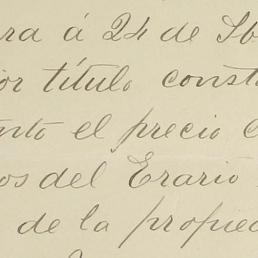 ra á 24 de Sb
or título const
nto el precio c
os del Erario
de la propied